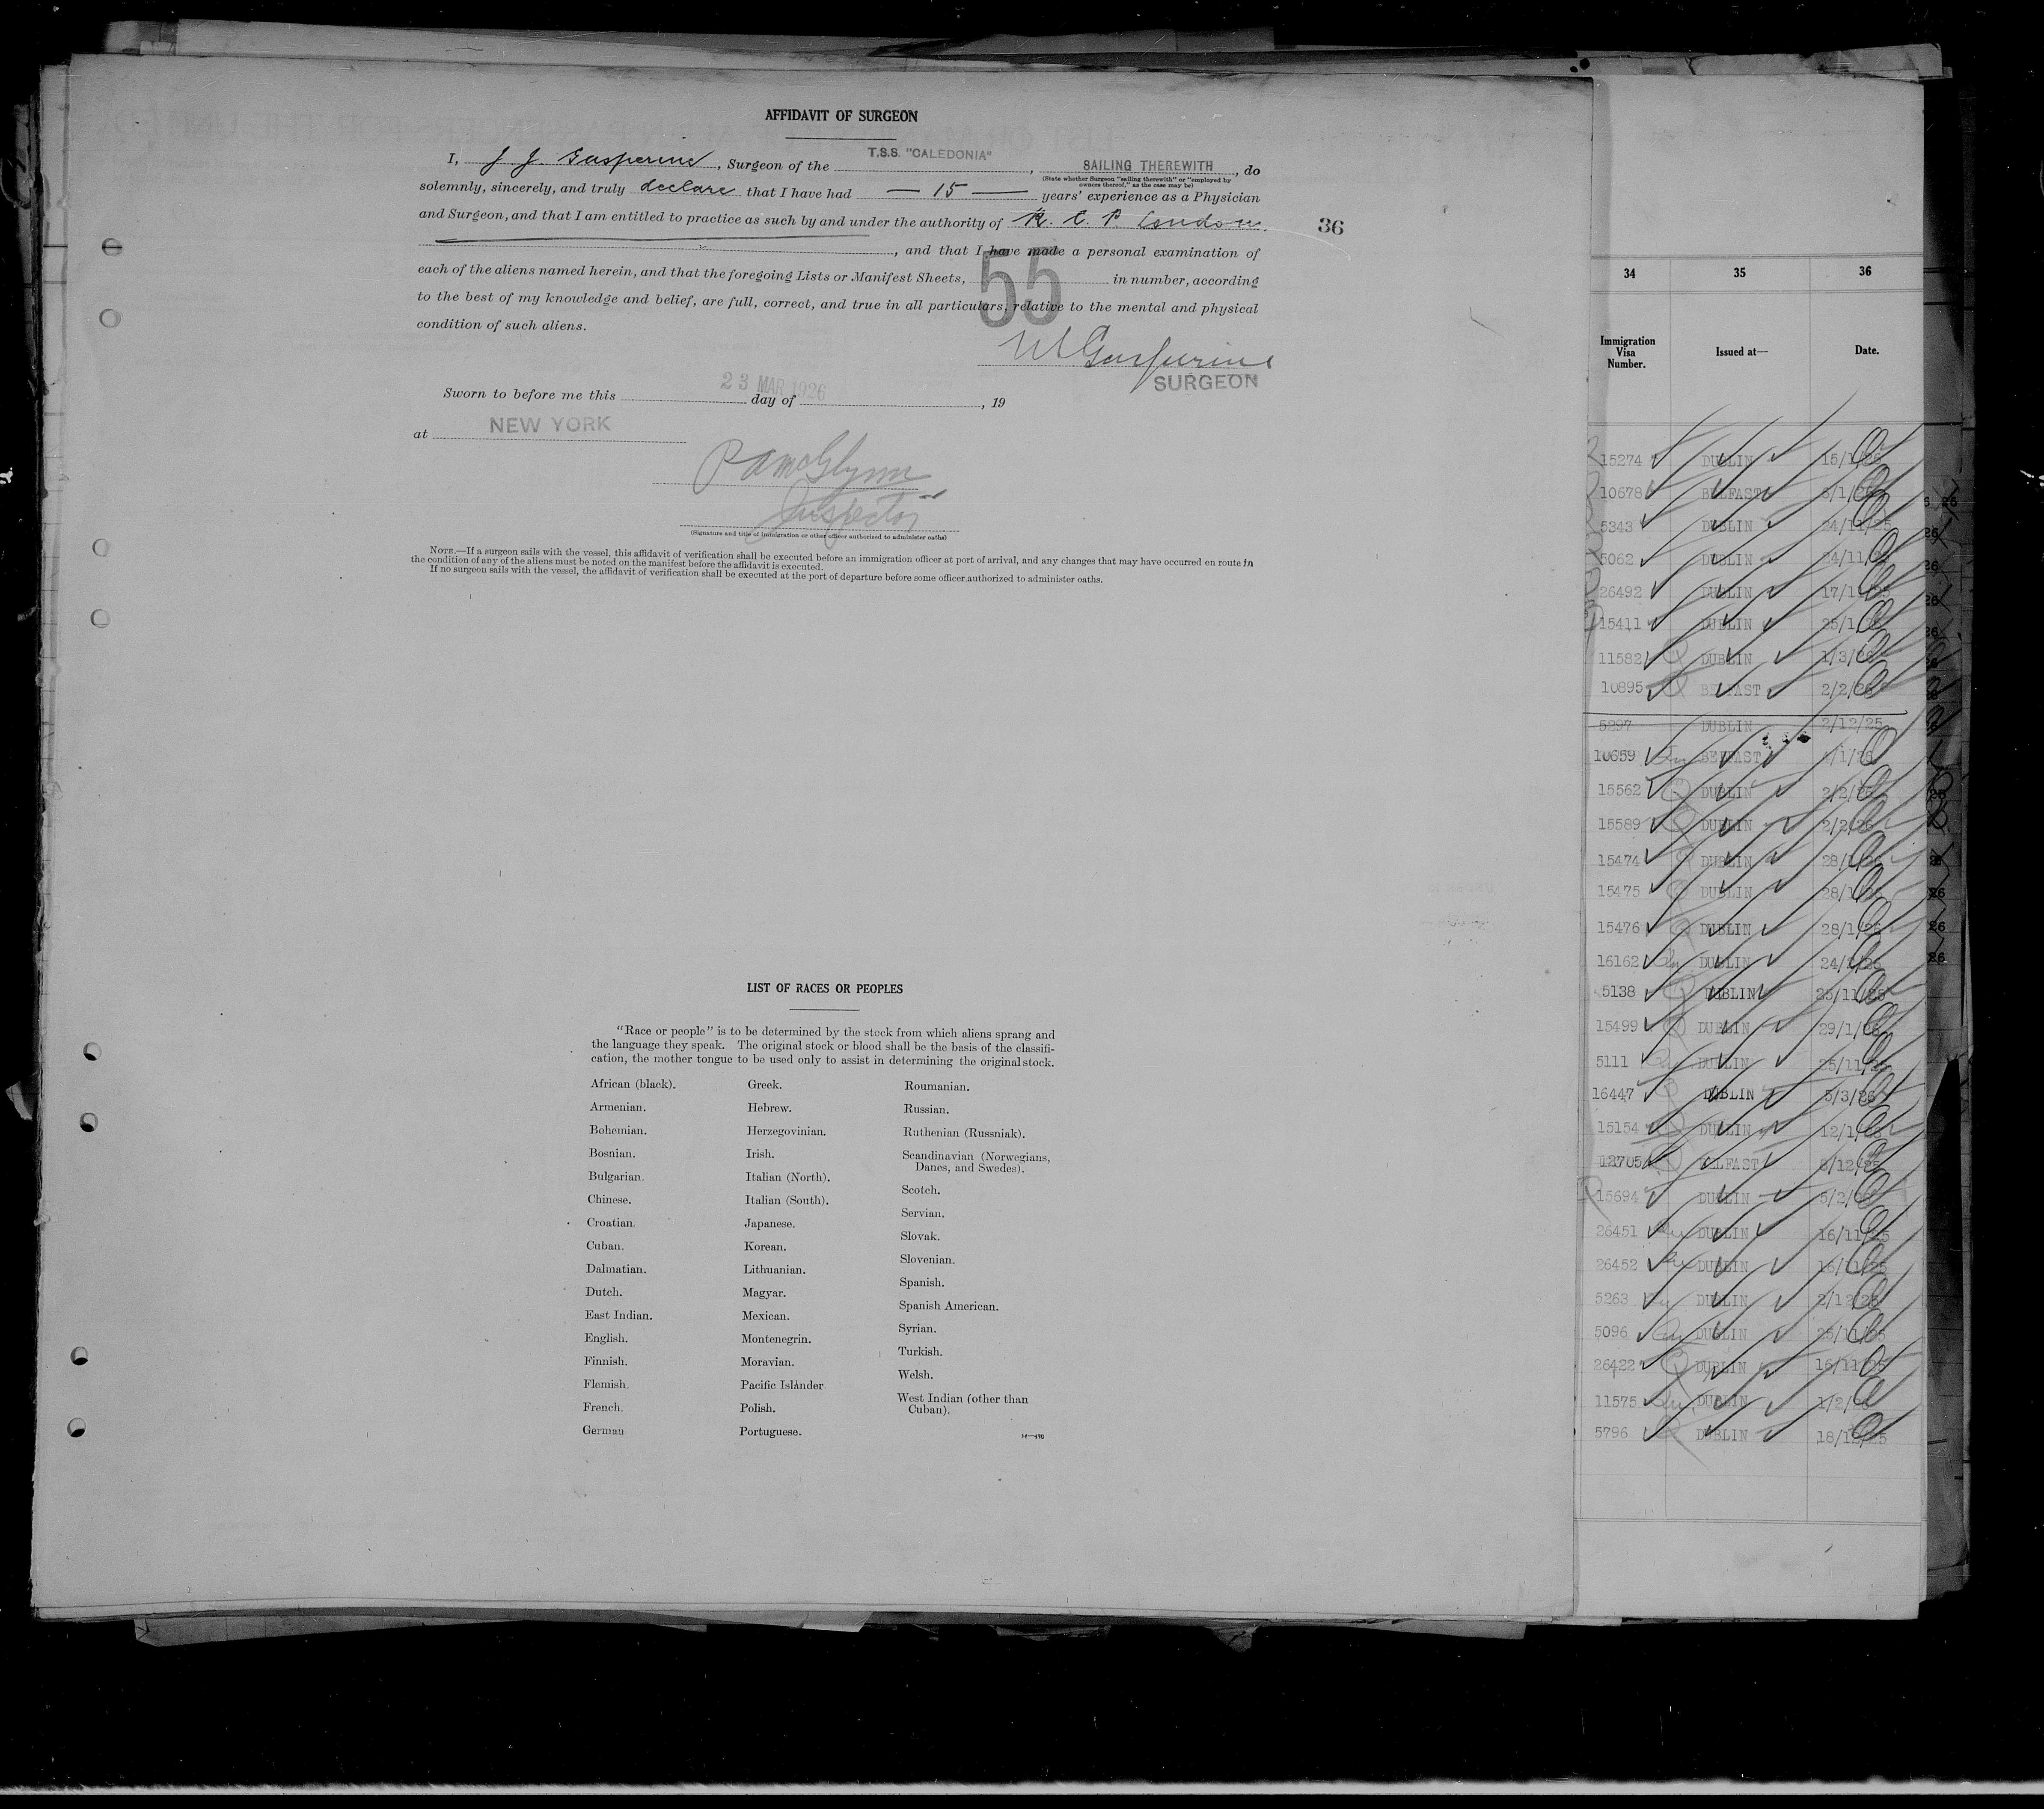 AFFIDAVIT OF SURGEON
I, J J. Gasperine, Surgeon of the T.S.S. "CALEDONIA", SAILING THEREWITH, do
(State whether Surgeon "sailing therewith" or "employed by owners thereof," as the case may be)
solemnly, sincerely, and truly declare that I have had — 15 — years' experience as a Physician
and Surgeon, and that I am entitled to practice as such by and under the authority of R. C. P. London.
36
, and that I have made a personal examination of
each of the aliens named herein, and that the foregoing Lists or Manifest Sheets, 55 in number, according
to the best of my knowledge and belief, are full, correct, and true in all particulars, relative to the mental and physical
condition of such aliens.
Gasperine
SURGEON
Sworn to before me this 23 MAR 1926 day of , 19
at NEW YORK
P A McGlynn
Inspector
(Signature and title of immigration or other officer authorized to administer oaths)
NOTE.—If a surgeon sails with the vessel, this affidavit of verification shall be executed before an immigration officer at port of arrival, and any changes that may have occurred en route in
the condition of any of the aliens must be noted on the manifest before the affidavit is executed.
If no surgeon sails with the vessel, the affidavit of verification shall be executed at the port of departure before some officer authorized to administer oaths.
LIST OF RACES OR PEOPLES
"Race or people" is to be determined by the stock from which aliens sprang and
the language they speak. The original stock or blood shall be the basis of the classifi-
cation, the mother tongue to be used only to assist in determining the original stock.
African (black).
Armenian.
Bohemian.
Bosnian.
Bulgarian.
Chinese.
Croatian.
Cuban.
Dalmatian.
Dutch.
East Indian.
English.
Finnish.
Flemish.
French.
German
Greek.
Hebrew.
Herzegovinian.
Irish.
Italian (North).
Italian (South).
Japanese.
Korean.
Lithuanian.
Magyar.
Mexican.
Montenegrin.
Moravian.
Pacific Islander
Polish.
Portuguese.
Roumanian.
Russian.
Ruthenian (Russniak).
Scandinavian (Norwegians,
Danes, and Swedes).
Scotch.
Servian.
Slovak.
Slovenian.
Spanish.
Spanish American.
Syrian.
Turkish.
Welsh.
West Indian (other than
Cuban).
34 35 36
Immigration Visa Number. Issued at— Date.
15274 DUBLIN 15/1/26
10678 BELFAST 8/1/26
5343 DUBLIN 24/11/25
5062 DUBLIN 24/11/25
26492 DUBLIN 17/11/25
15411 DUBLIN 25/1/26
11582 DUBLIN 1/3/26
10895 BELFAST 2/2/26
5297 DUBLIN 2/12/25
10659 BELFAST /1/26
15562 DUBLIN 2/2/26
15589 DUBLIN 2/2/26
15474 DUBLIN 28/1/26
15475 DUBLIN 28/1/26
15476 DUBLIN 28/1/26
16162 DUBLIN 24/2/26
5138 DUBLIN 25/11/25
15499 DUBLIN 29/1/26
5111 DUBLIN 25/11/25
16447 DUBLIN 5/3/26
15154 DUBLIN 12/1/26
12705 BELFAST 8/12/25
15694 DUBLIN 5/2/26
26451 DUBLIN 16/11/25
26452 DUBLIN 16/11/25
5263 DUBLIN 2/12/25
5096 DUBLIN 25/11/25
26422 DUBLIN 16/11/25
11575 DUBLIN 1/2/26
5796 DUBLIN 18/12/25